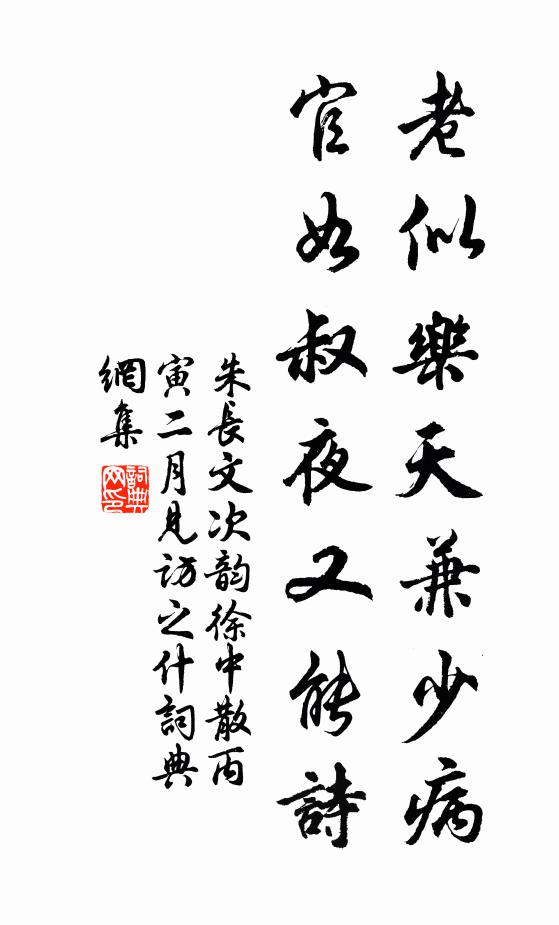 老似樂天兼少病
官如叔夜又能詩
朱長文次韵徐中散丙
寅二月見訪之什詞典
網集
詞典
网印